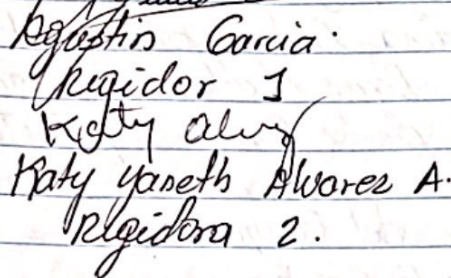 Agustin Garcia.
Regidor 1
Katy Alvz
Katy Yaneth Alvarez A.
Regidora 2.